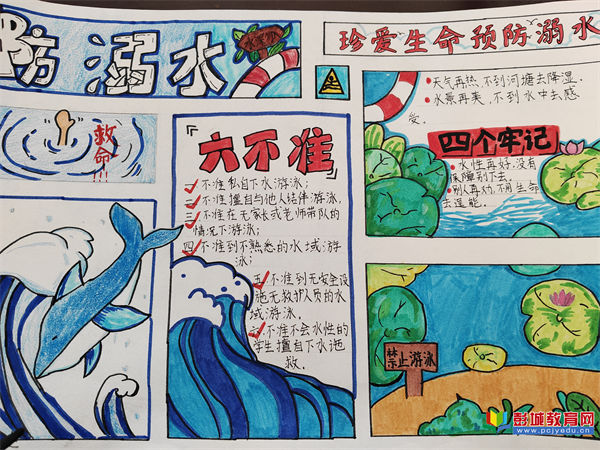 防溺水
水深危险
珍爱生命预防溺水
救命!!!
『六不准』
一不准私自下水游泳;
二不准擅自与他人结伴游泳,
三不准在无家长或老师带队的
情况下游泳;
四不准到不熟悉的水域游
泳;
五不准到无安全设
施无救护人员的水
域游泳.
六不准不会水性的
学生擅自下水施
救.
天气再热,不到河塘去降湿.
水景再美,不到水中去感
受.
四个牢记
水性再好,没有
保障别下去.
别人再劝,不用生命
去逞能.
禁止游泳
彭城教育网
www.pcjyedu.cn